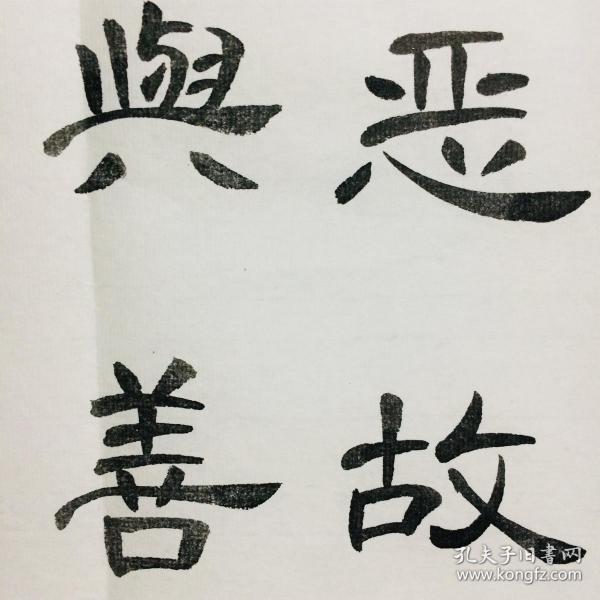 恶故
與善
孔夫子旧書网
www.kongfz.com